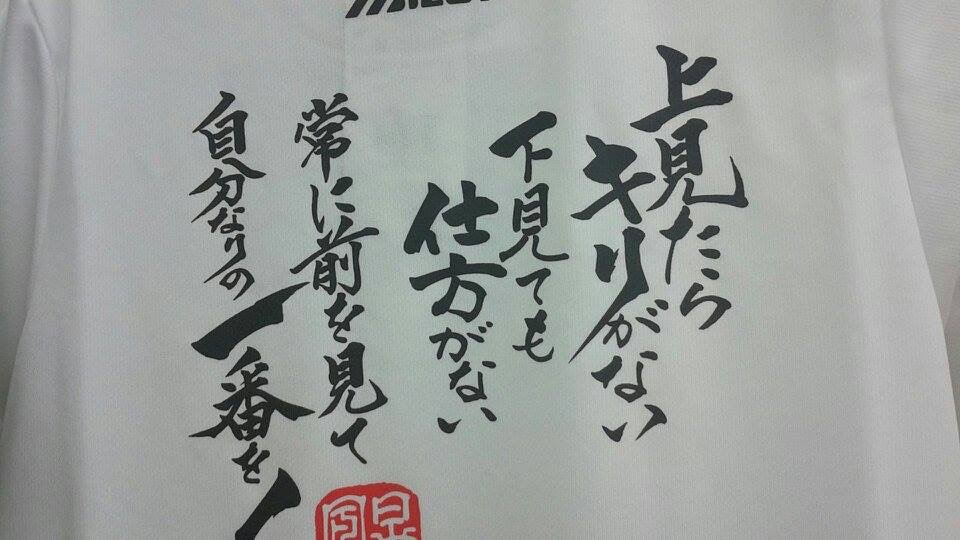 上見たら
キリがない
下見ても
仕方がない
常に前を見て
自分なりの
一番を!